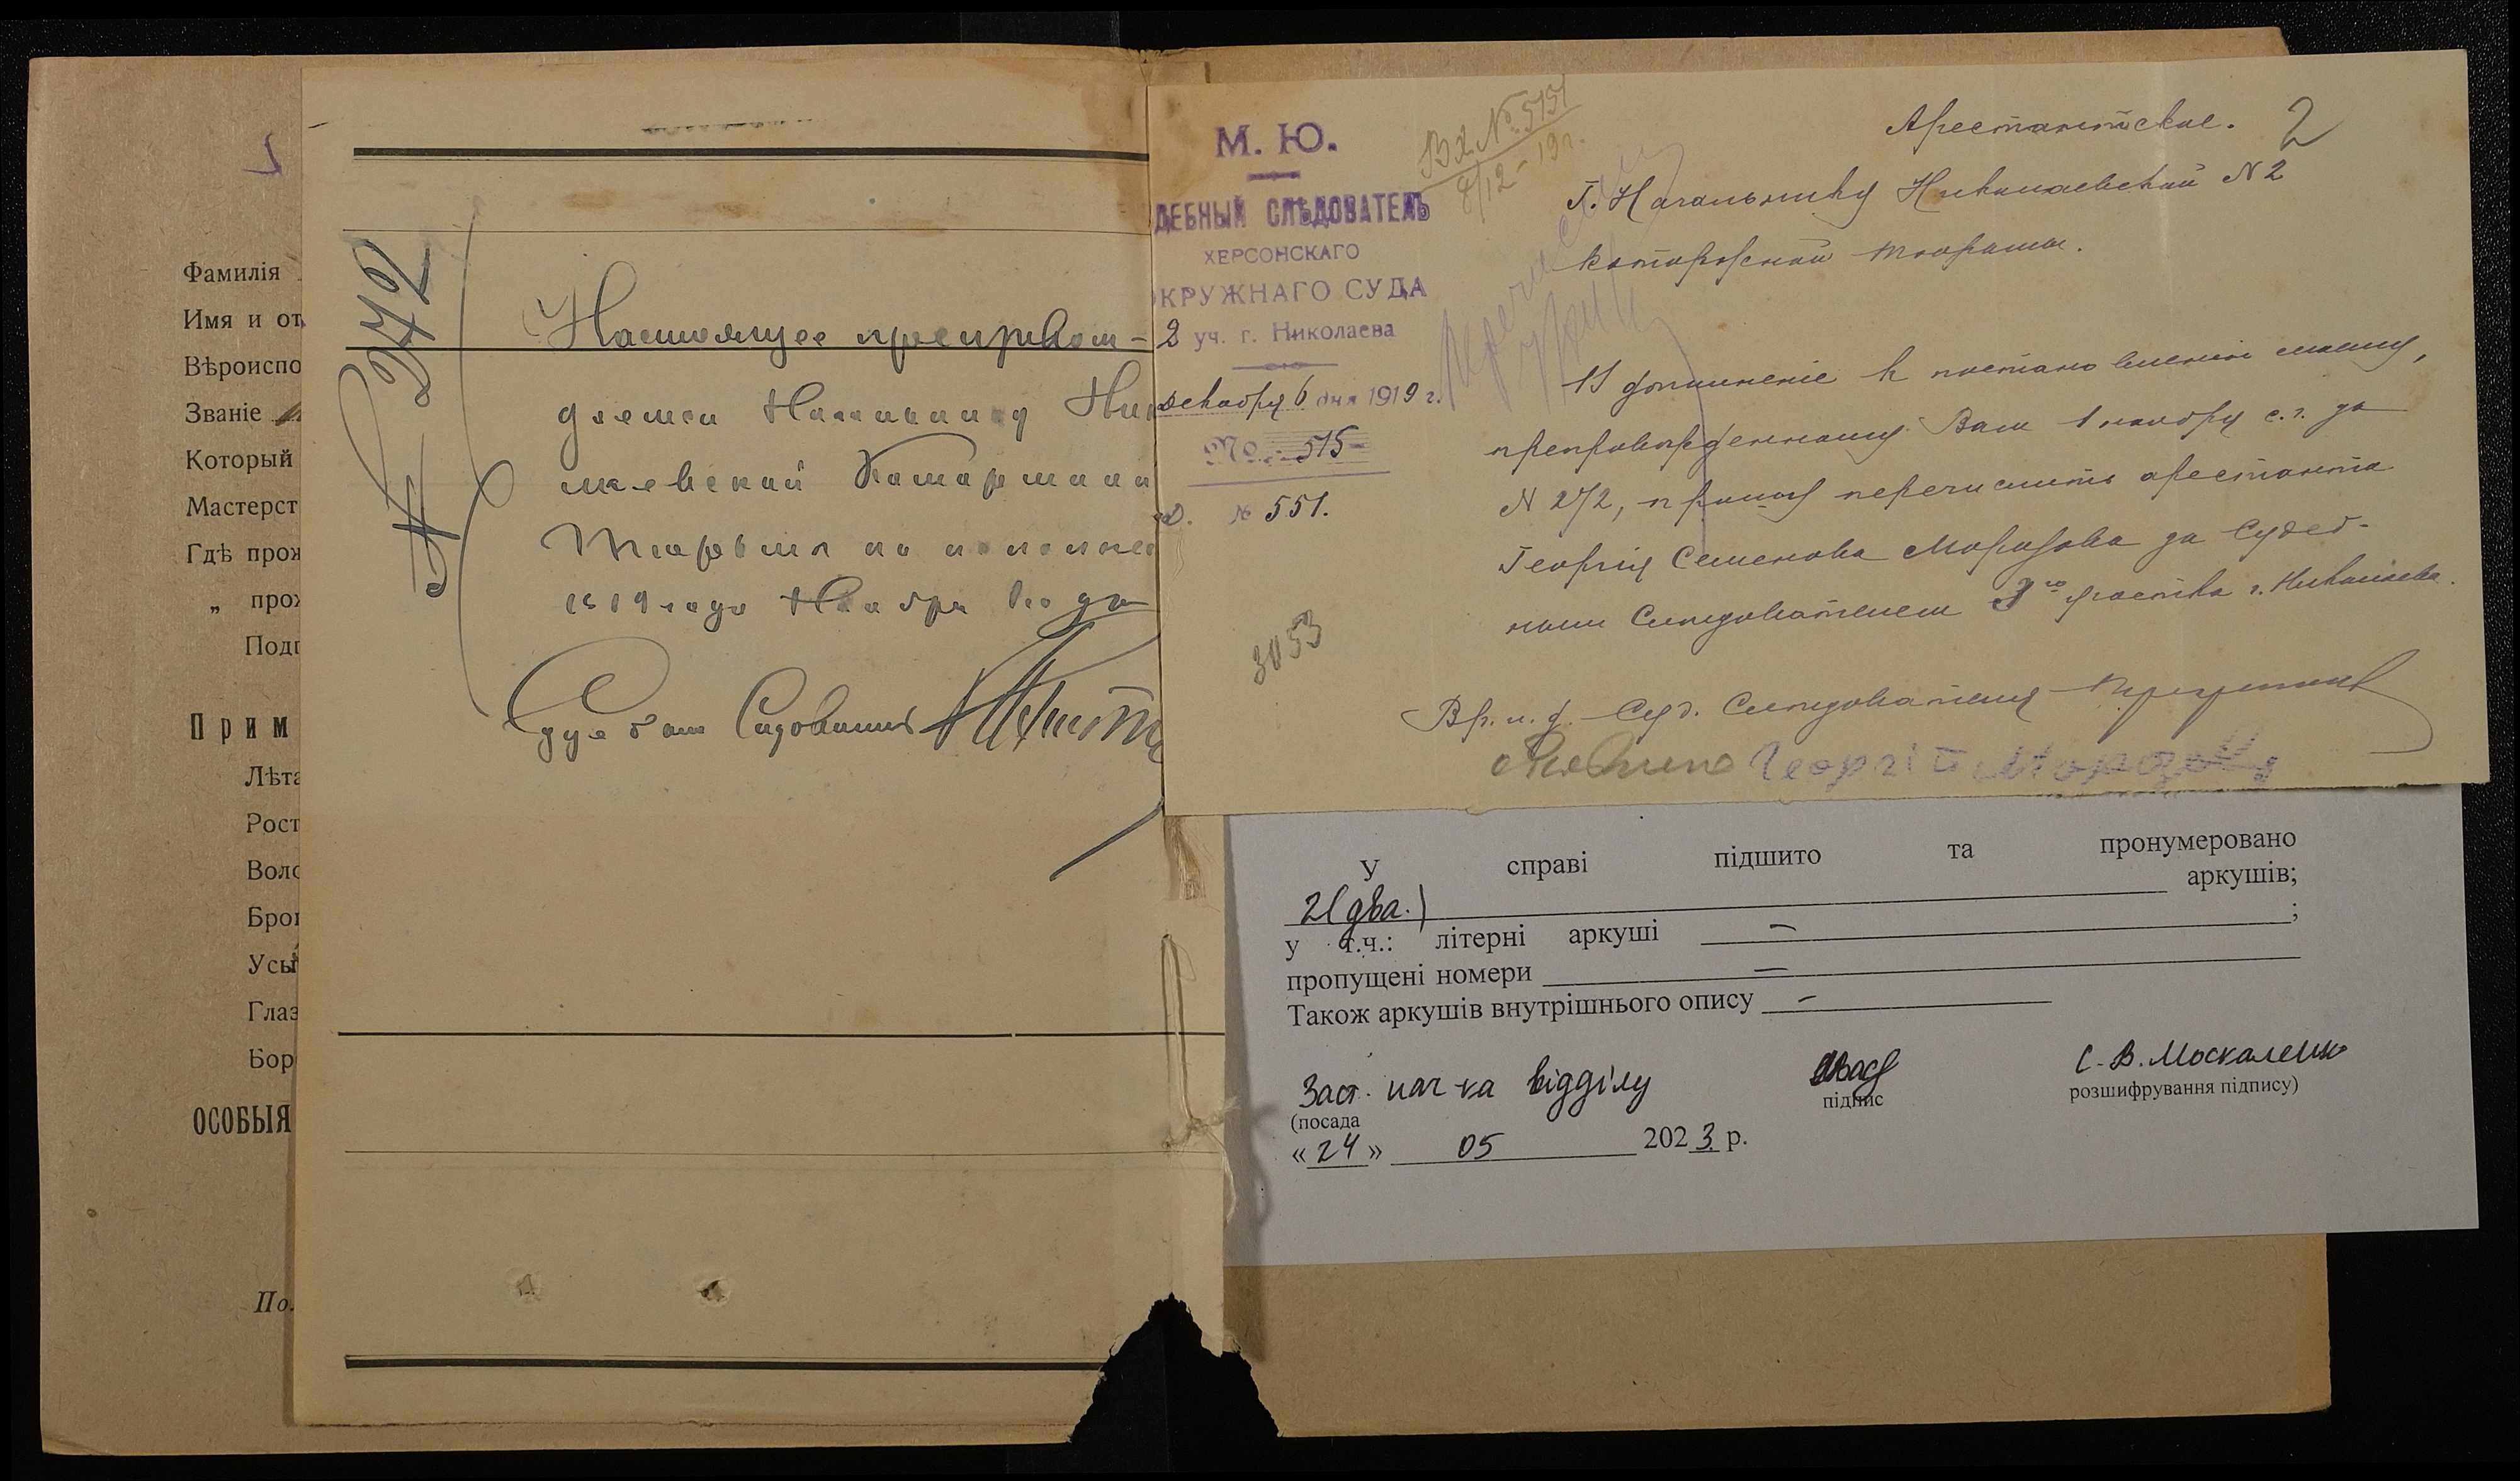 1
Фамилія
Имя и от
Вѣроиспо
Званіе
Который
Мастерст
Гдѣ прож
„ прож
Подп
Прим
Лѣта
Рост
Воло
Бров
Усы
Глаз
Бор
ОСОБЫЯ
По.
№ 272
Настоящее препровож-
дается Начальнику Ник
лаевской Каторжной
Тюрьмы на исполнен
1919 года Ноября 1 го дн
Судебн Следователь
М. Ю.
ДЕБНЫЙ СЛѢДОВАТЕЛЬ
ХЕРСОНСКАГО
ОКРУЖНАГО СУДА
2 уч. г. Николаева
Декабря 6 дня 1919 г.
№ 515
№ 551.
3053
Вх. № 5151
8/12-19 г.
Арестантское. 2
Г. Начальнику Николаевской N 2
каторжной тюрьмы.
В дополненіе к постановленію моему,
препровожденному Вам 1 ноября с.г. за
N 272, прошу перечислить арестанта
Георгія Семенова Морозова за Судеб-
ным Следователем 3го участка г. Николаева.
Вр. и. д. Суд. Следователя
Георгій Морозовъ
У справі підшито та пронумеровано
2 (два.) аркушів;
у т.ч.: літерні аркуші – ;
пропущені номери –
Також аркушів внутрішнього опису –
Заст. нач-ка відділу С.В. Москаленко
(посада підпис розшифрування підпису)
« 24 » 05 2023 р.